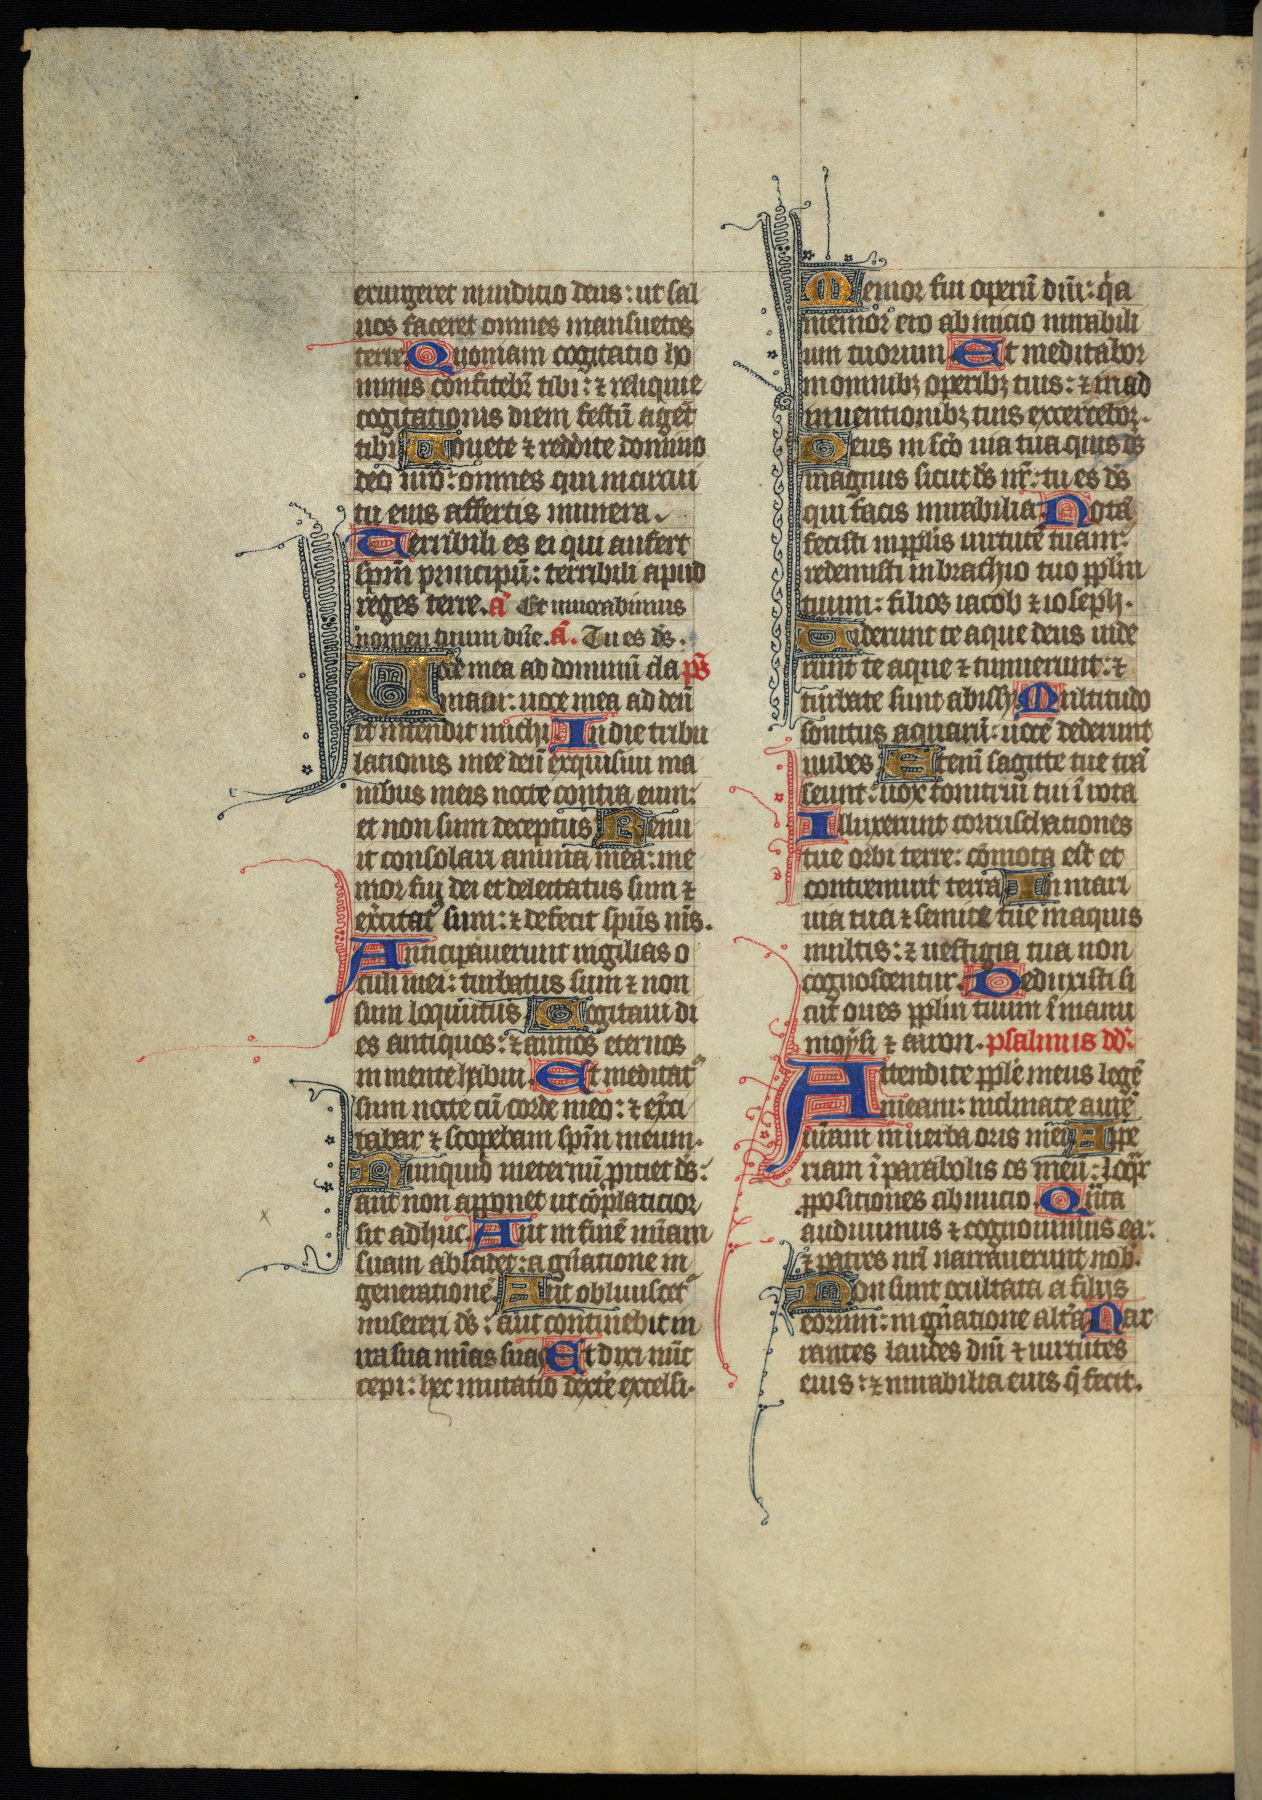 exurgeret in iudicio deus : ut sal
uos faceret omnes mansuetos
terre Quoniam cogitatio ho
minis confitebr̄ tibi : ⁊ reliquie
cogitationis diem festū agēt
tibi Uouete ⁊ reddite domino
deo nr̄o : omnes qui in circui
tu eius affertis munera .
Terribili es ei qui aufert
spm̄ principū : terribili apud
reges terre . a͞ Et inuocabimus
nomen tuum dn̄e . a͞ . Tu es ds̄ .
Uoce mea ad dominū cla ps̄
maui : uoce mea ad deū
et intendit michi In die tribu
lationis mee deū exquisiui ma
nibus meis nocte contra eum :
et non sum deceptus Renu
it consolari anima mea : me
mor fui dei et delectatus sum ⁊
exc̄itatꝰ sum : ⁊ defecit spūs ms̄ .
Anticipauerunt uigilias o
culi mei : turbatus sum ⁊ non
sum loquutus Cogitaui di
es antiquos : ⁊ annos eternos
in mente habui . Et meditatꝰ
sum nocte cū corde meo : ⁊ exc̄i
tabar ⁊ scopebam spm̄ meum .
Nunquid in eternū proiciet ds̄ :
aut non apponet ut cōplacitior
sit adhuc . Aut in finē mīam
suam abscidet : a gn̄atione in
generationē . Aut obliuiscetꝰ
misereri ds̄ : aut continebit in
ira sua mīas suas Et dixi nūc
cepi : hec mutatio dextre excelsi .
Memor fui operū dn̄i : qa
memor ero ab inicio mirabili
um tuorum Et meditabor
in omnibꝫ operibꝫ tuis : ⁊ in ad
inuentionibꝫ tuis exercebor .
Deus in sco͞ uia tua quis ds̄
magnus sicut ds̄ nr̄ : tu es ds̄
qui facis mirabilia Notā
fecisti in pplis̄ uirtutē tuam :
redemisti in brachio tuo pplm̄
tuum : filios iacob ⁊ ioseph .
Uiderunt te aque deus uide
runt te aque ⁊ timuerunt : ⁊
turbate sunt abissi Multitudo
sonitus aquarū : uocē dederunt
nubes Etenī sagitte tue trā
seunt : uox tonitrui tui ī rota
Illuxerunt corruscationes
tue orbi terre : cōmota est et
contremuit terra In mari
uia tua ⁊ semite tue in aquis
multis : ⁊ uestigia tua non
cognoscentur . Deduxisti si
cut oues pplm̄ tuum ī manu
moysi ⁊ aaron . psalmus dd̄ .
Attendite pplē meus legē
meam : inclinate aurē
uūam in uerba oris mei Ape
riam ī parabolis os meū : loqr̄
ꝓpositiones ab inicio . Qn̄ta
audiuimus ⁊ cognouimus ea :
⁊ patres nr̄i narrauerunt nob̄ .
Non sunt occultata a filiis
eorum : in gn̄atione altā Nar
rantes laudes dn̄i ⁊ uirtutes
eius : ⁊ mirabilia eius q̄ fecit .